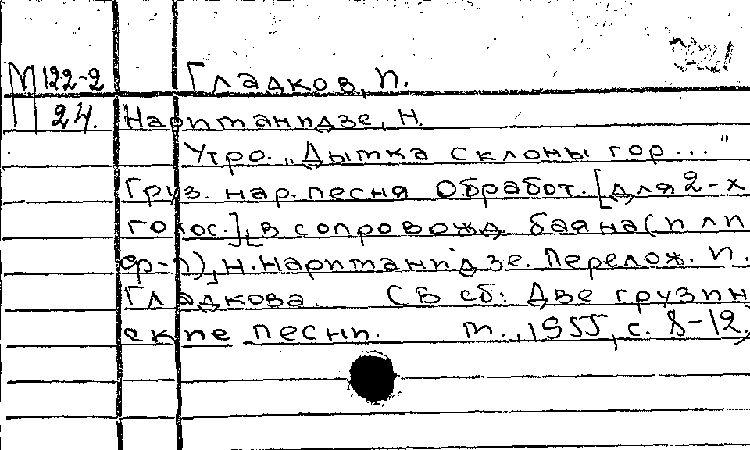 М 122-2 Гладков, П.
П 24. Нариманидзе, Н.
Утро. „Дымка склоны гор..."
Груз. нар. песня Обработ. [для 2-х
голос.], в сопровожд баяна (или
ф-п), Н. Нариманидзе. Перелож. П.
Гладкова. Св сб: Две грузин
ские песни. М., 1955, с. 8-12.